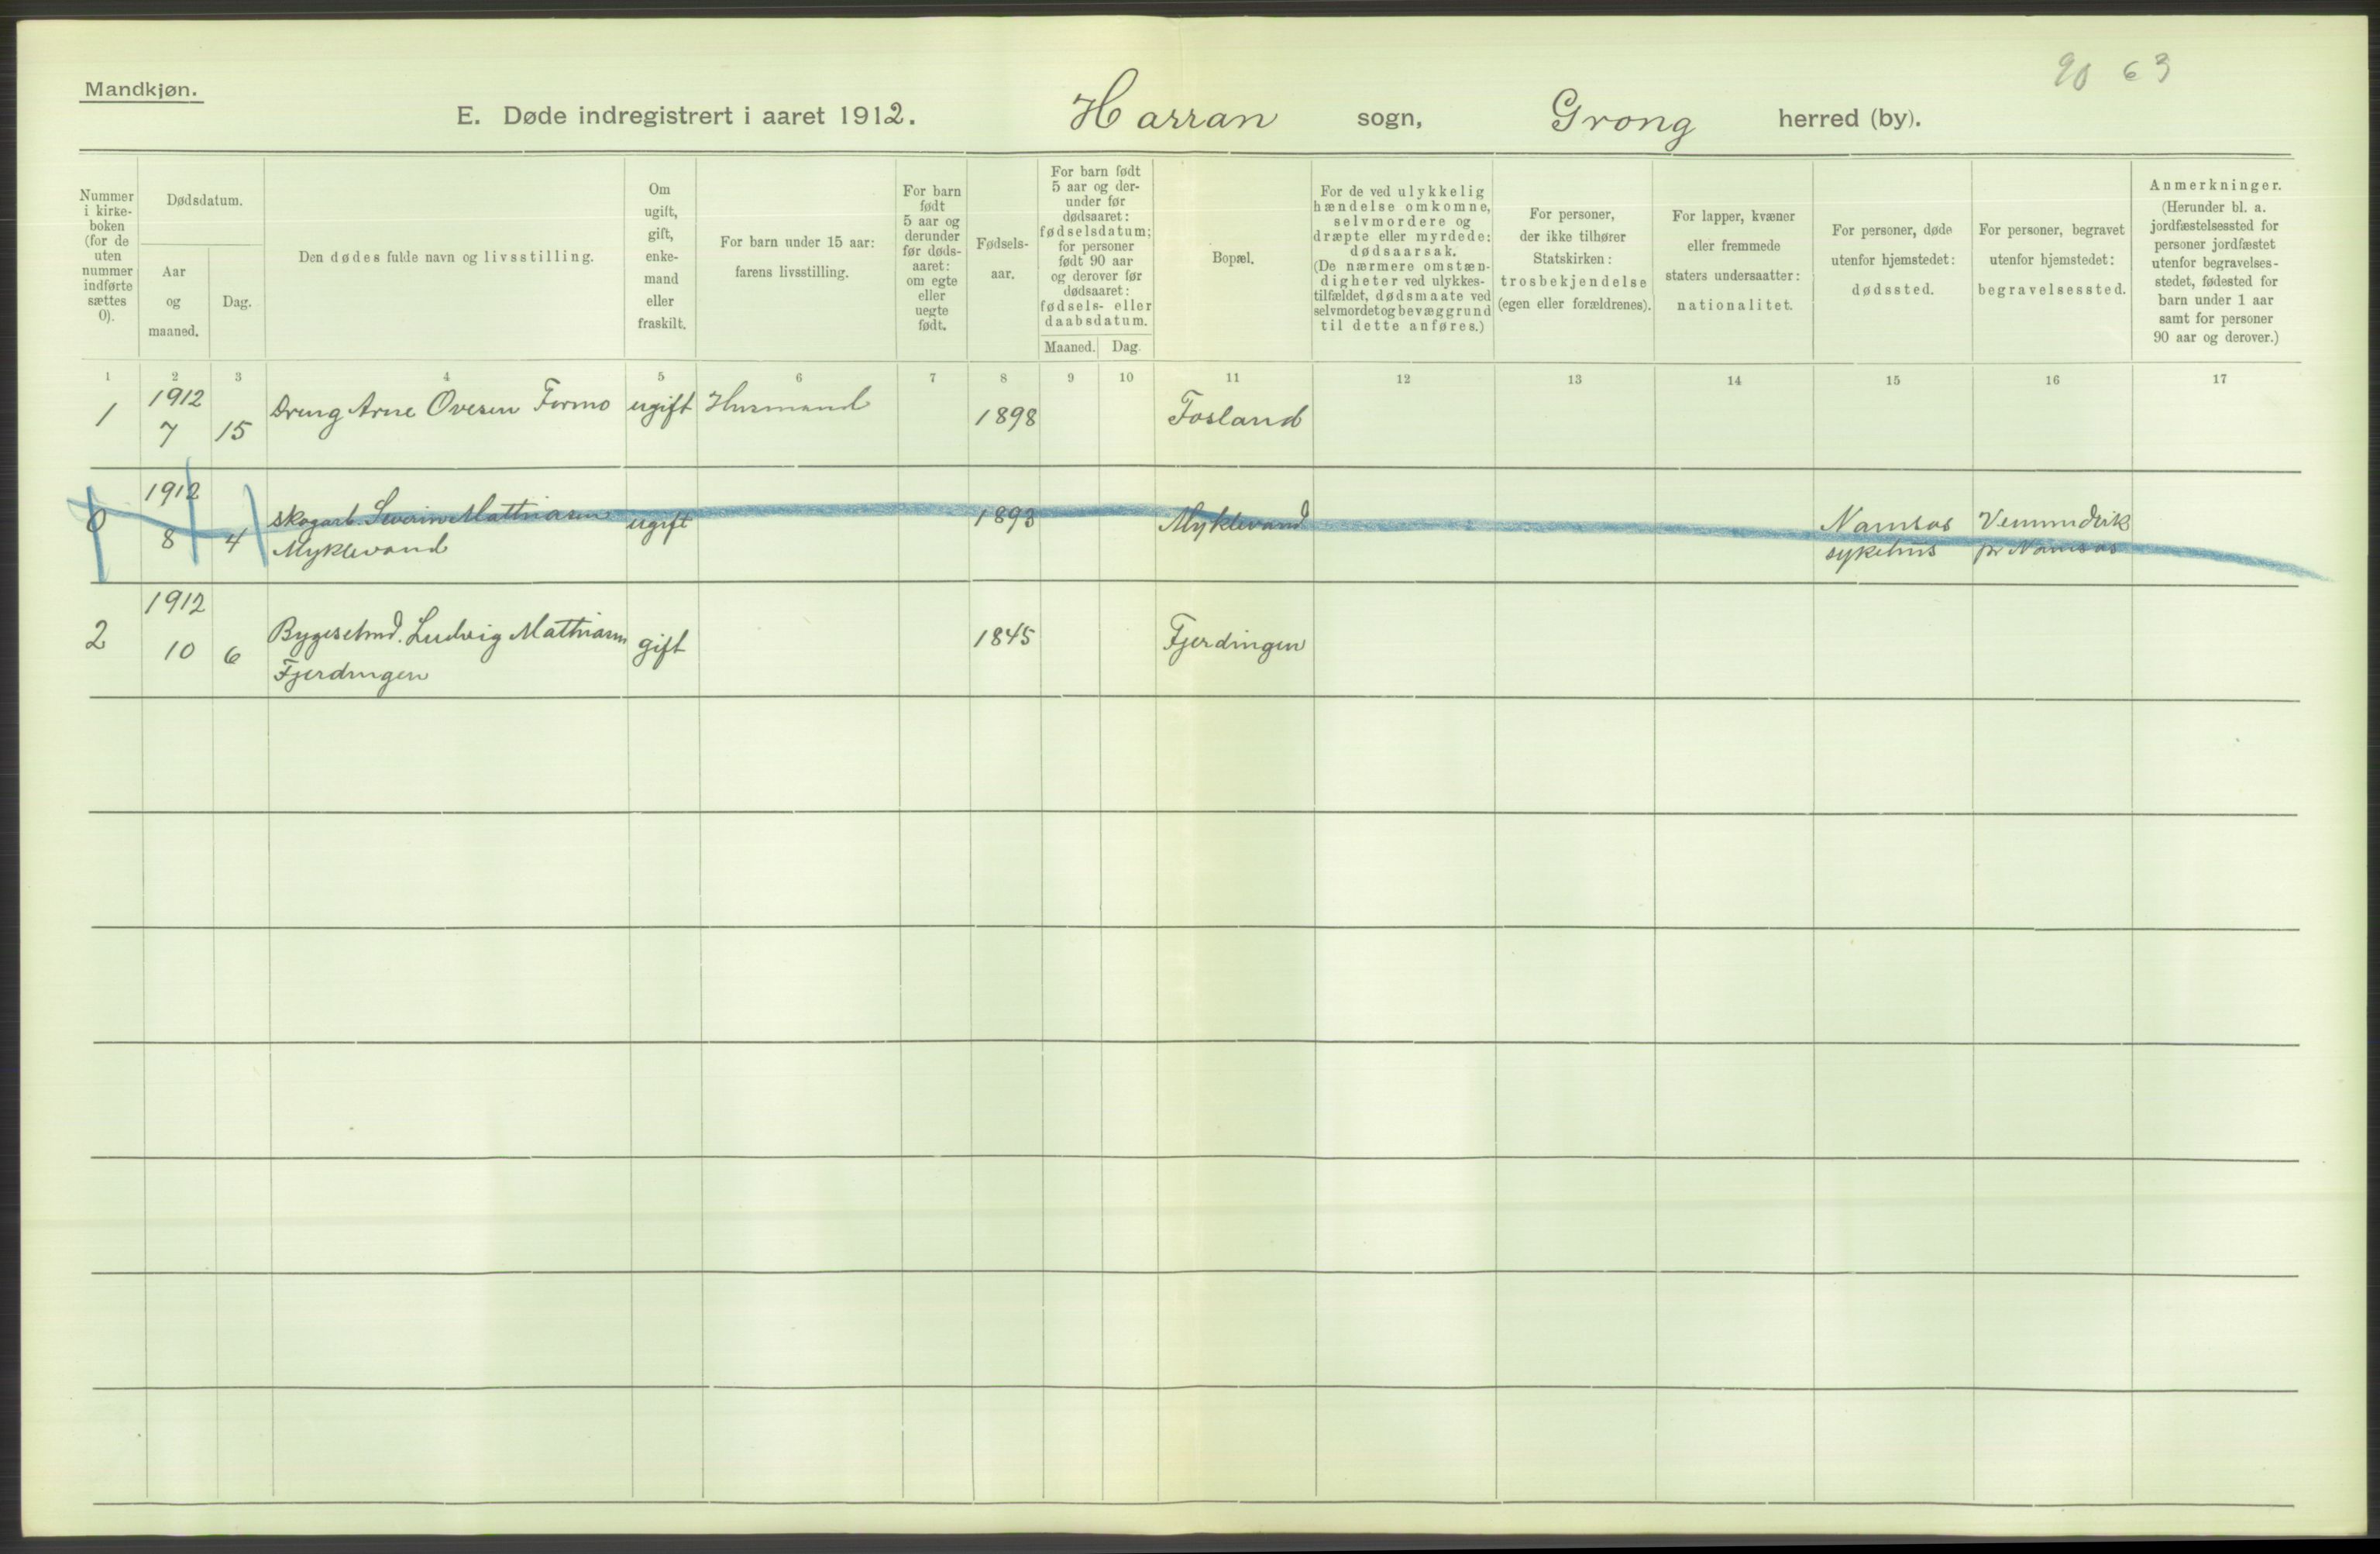 90 63
Mandkjøn.
E. Døde indregistrert i aaret 1912. Harran sogn, Grong herred (by).
Nummer i kirke-boken (for de uten nummer indførte sættes 0).
Dødsdatum.
Aar og maaned.
Dag.
Den dødes fulde navn og livsstilling.
Om ugift, gift, enke-mand eller fraskilt.
For barn under 15 aar: farens livsstilling.
For barn født 5 aar og derunder før døds-aaret: om egte eller uegte født.
Fødsels-aar.
For barn født 5 aar og der-under før dødsaaret: fødselsdatum; for personer født 90 aar og derover før dødsaaret: fødsels- eller daabsdatum.
Maaned. Dag.
Bopæl.
For de ved ulykkelig hændelse omkomne, selvmordere og dræpte eller myrdede: dødsaarsak. (De nærmere omstæn-digheter ved ulykkes-tilfældet, dødsmaate ved selvmordet og bevæggrund til dette anføres.)
For personer, der ikke tilhører Statskirken: trosbekjendelse (egen eller forældrenes).
For lapper, kvæner eller fremmede staters undersaatter: nationalitet.
For personer, døde utenfor hjemstedet: dødssted.
For personer, begravet utenfor hjemstedet: begravelsessted.
Anmerkninger. (Herunder bl. a. jordfæstelsessted for personer jordfæstet utenfor begravelses-stedet, fødested for barn under 1 aar samt for personer 90 aar og derover.)
1 2 3 4 5 6 7 8 9 10 11 12 13 14 15 16 17
1 1912 7 15 Dreng Arne Ovesen Formo ugift Husmand 1898 Fosland
0 1912 8 4 Skogarb. Severin Mathiasen Myklevand ugift 1893 Myklevand Namsos sykehus Vemundvik pr Namsos
2 1912 10 6 Bygselmd. Ludvig Mathiasen Fjerdingen gift 1845 Fjerdingen